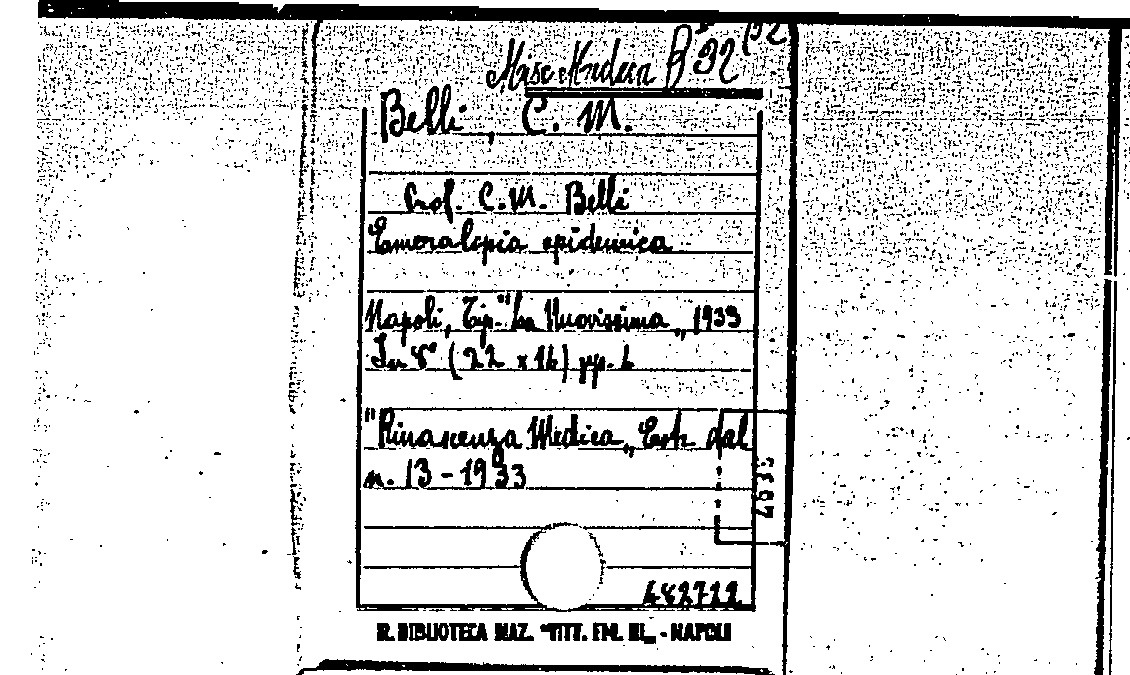 Misc. Andria B 92
Belli, C. M.
Prof. C. M. Belli
Emeralopia epidemica
Napoli, Tip. "La Nuovissima„, 1933
In 8° (22 x 16) pp. 6
"Rinascenza Medica„ Estr. dal
n. 13 - 1933
4933
482722
R. BIBLIOTECA NAZ. "VITT. EM. III„ - NAPOLI